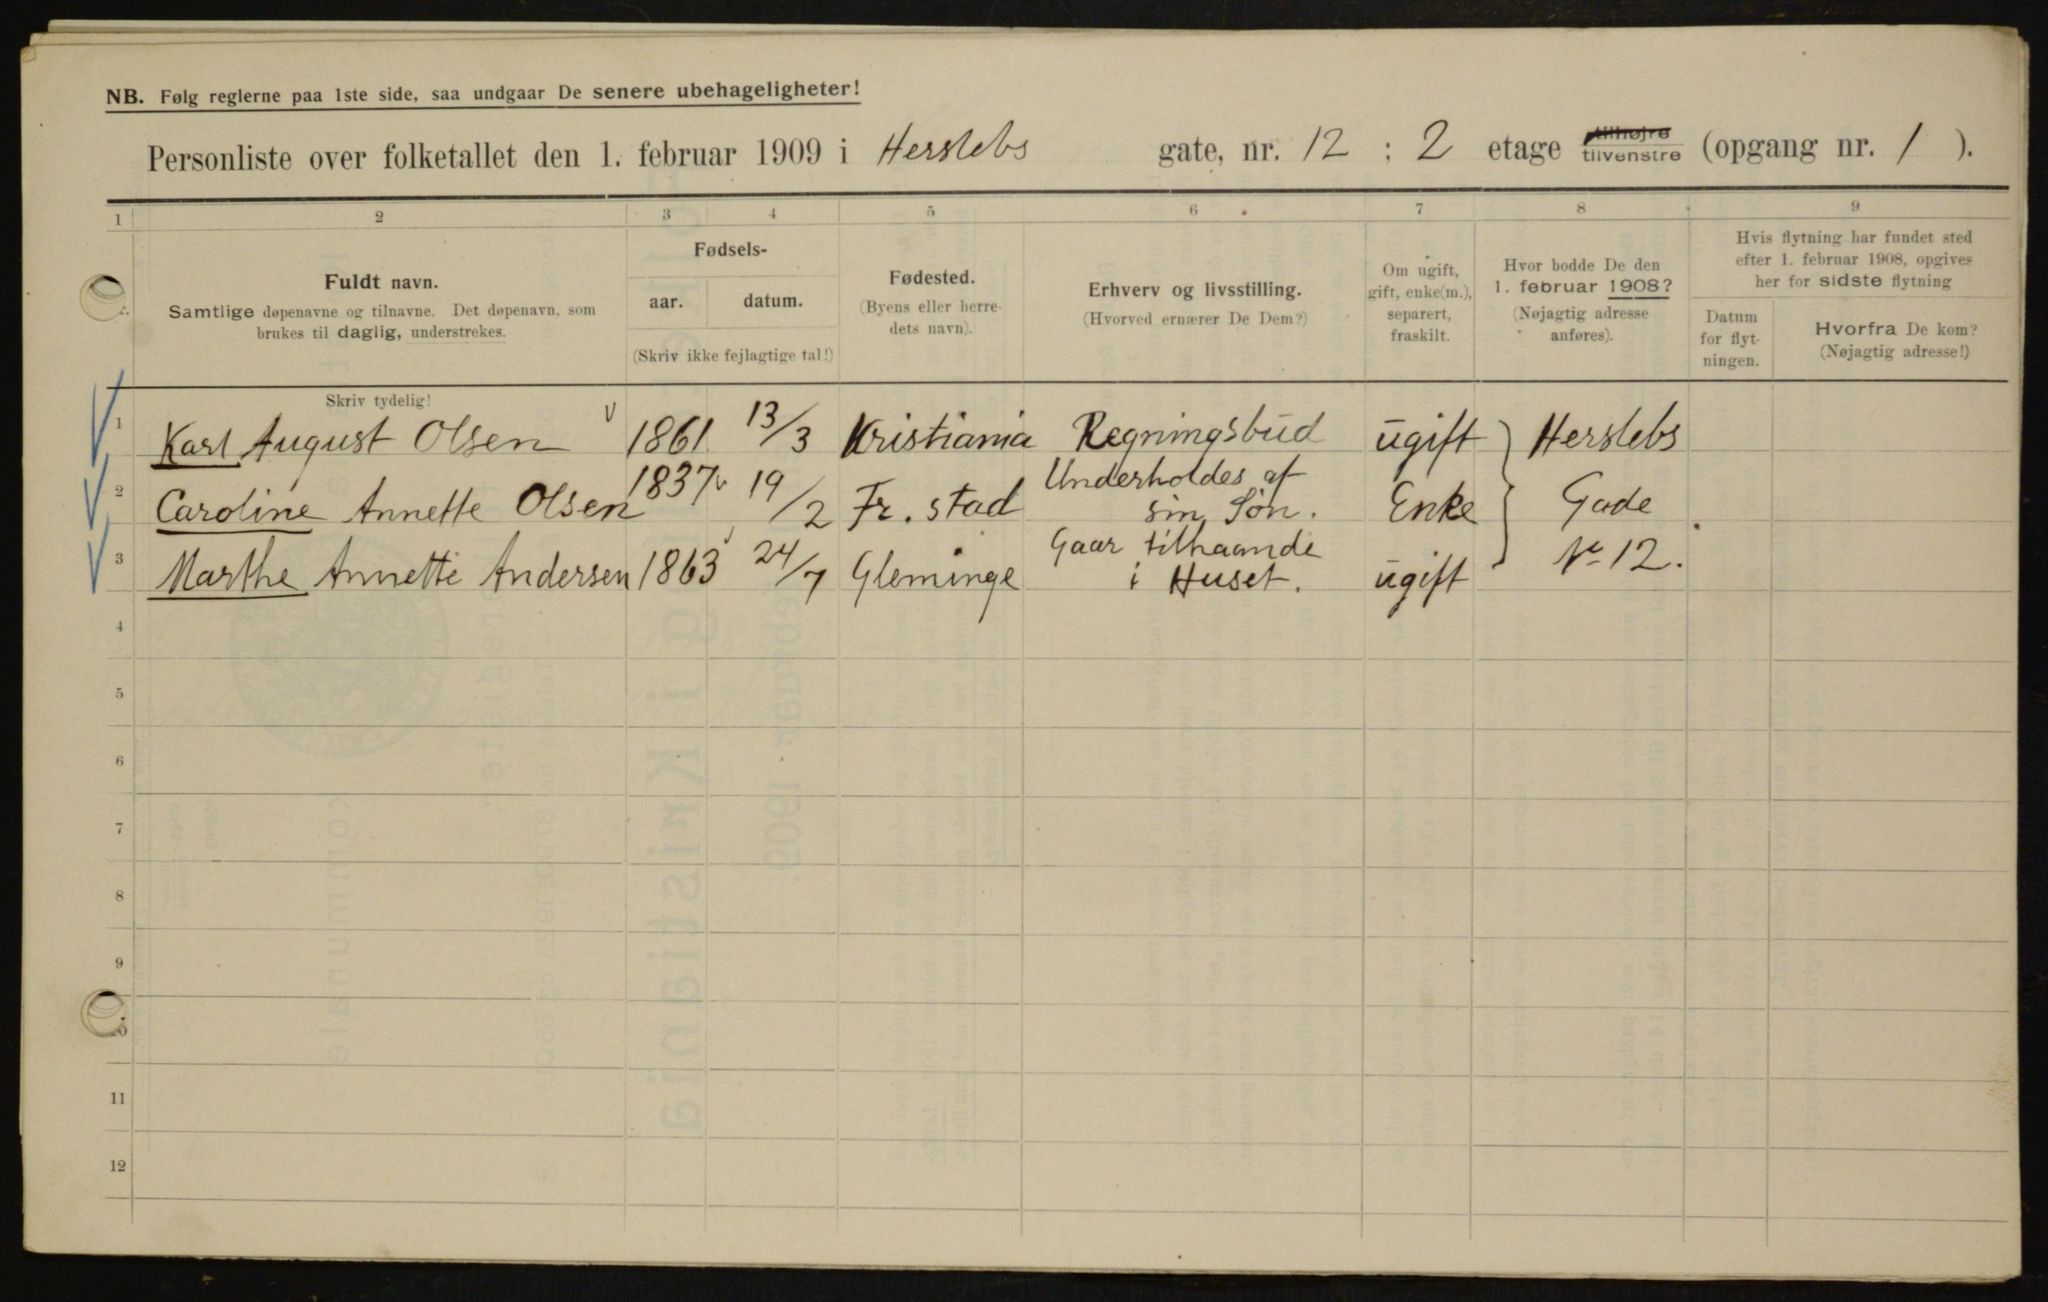 NB. Følg reglerne paa 1ste side, saa undgaar De senere ubehageligheter!
Personliste over folketallet den 1. februar 1909 i Herslebs gate, nr. 12 : 2 etage tilhøjre tilvenstre (opgang nr. 1 ).
1 2 3 4 5 6 7 8 9
Fuldt navn.
Samtlige døpenavne og tilnavne. Det døpenavn, som
brukes til daglig, understrekes.
Fødsels-
aar. datum.
(Skriv ikke fejlagtige tal!)
Fødested.
(Byens eller herre-
dets navn).
Erhverv og livsstilling.
(Hvorved ernærer De Dem?)
Om ugift,
gift, enke(m.),
separert,
fraskilt.
Hvor bodde De den
1. februar 1908?
(Nøjagtig adresse
anføres).
Hvis flytning har fundet sted
efter 1. februar 1908, opgives
her for sidste flytning
Datum
for flyt-
ningen.
Hvorfra De kom?
(Nøjagtig adresse!)
Skriv tydelig!
1 Karl August Olsen 1861 13/3 Kristiania Regningsbud ugift Herslebs
2 Caroline Annette Olsen 1837 19/2 Fr. stad Underholdes af sin Søn. Enke Gade
3 Marthe Annette Andersen 1863 24/7 Gleminge Gaar tilhaande i Huset. ugift No 12.
4
5
6
7
8
9
10
11
12